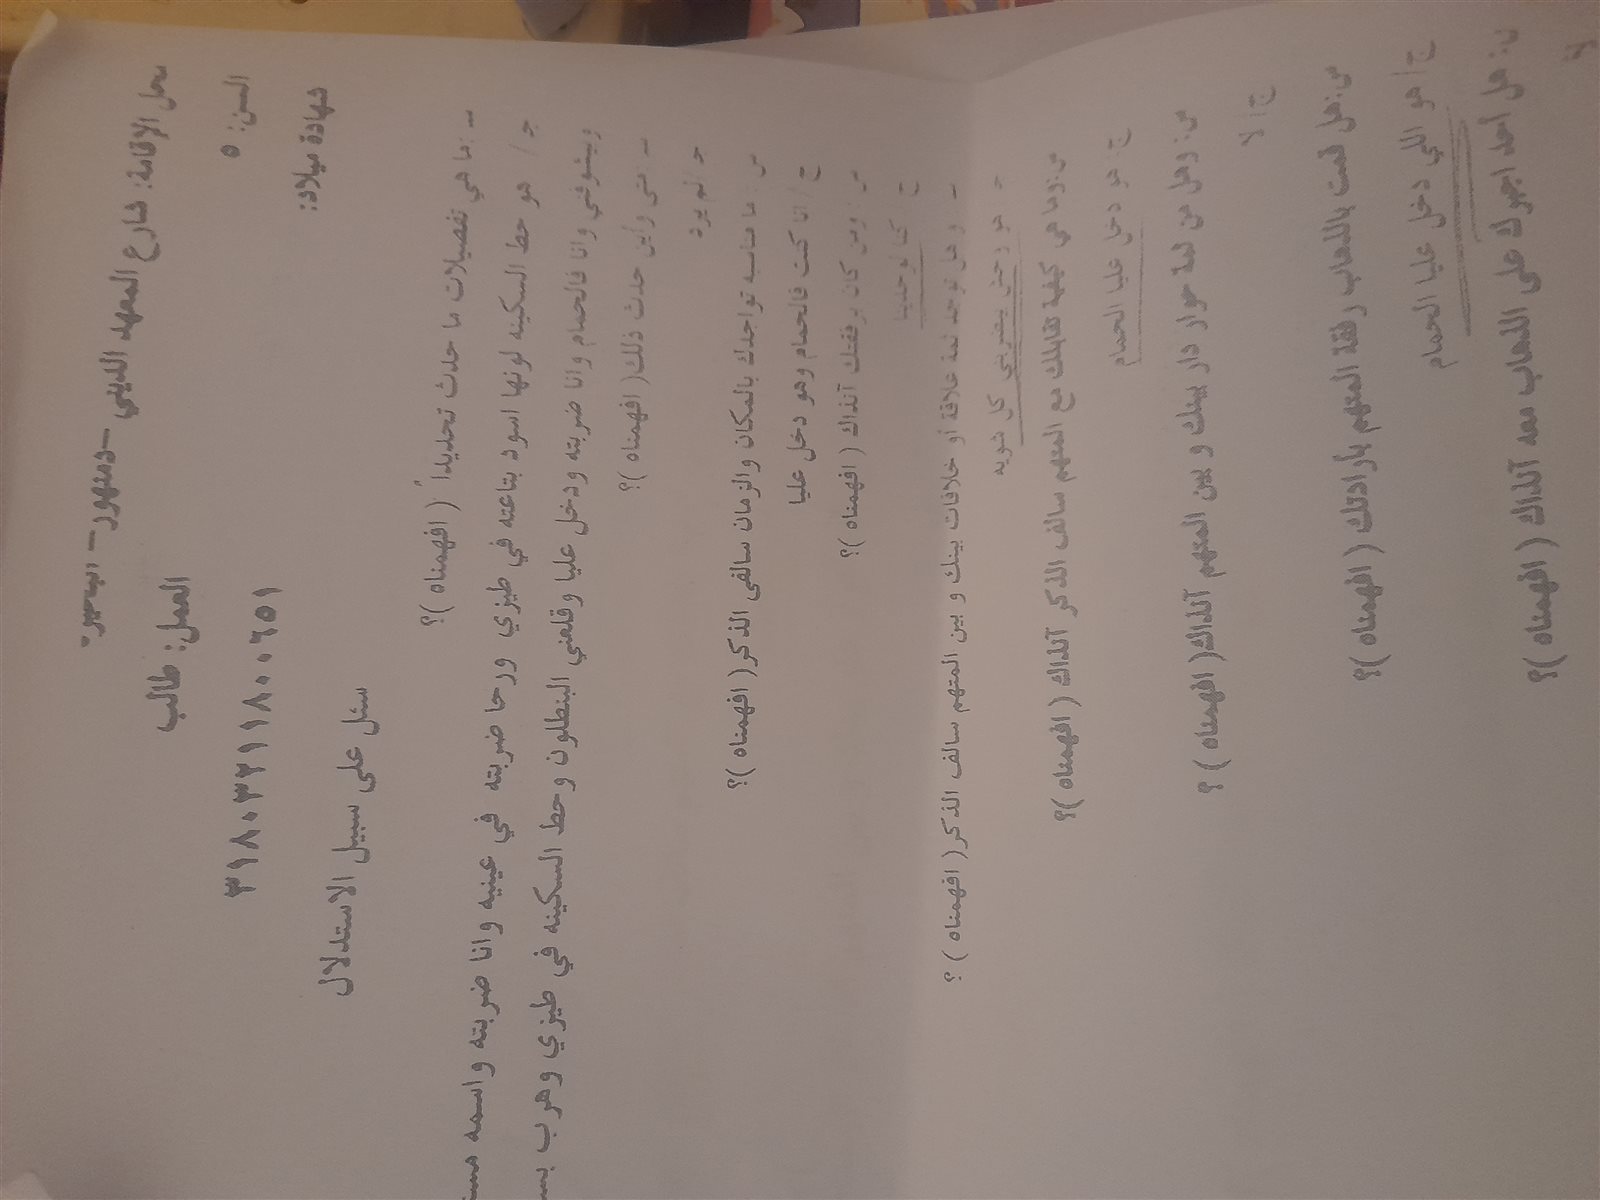 محل الإقامة: شارع المعهد الديني – دمنهور – البحيرة
السن: ٥ العمل: طالب
شهادة ميلاد: ٣١٨٠٣٢١١٨٠٠٦٥١
سئل على سبيل الاستدلال
ما هي تفصيلات ما حدث تحديداً ( افهمناه )؟
جـ/ هو حط السكينه لونها اسود بتاعته في طيزي ورحا ضربته في عينيه وانا ضربته واسمه
وانا فالحمام وانا ضربته ودخل عليا وقلعني البنطلون وحط السكينه في طيزي وهرب
متى وأين حدث ذلك( افهمناه )؟
جـ/ لم يرد
س/ ما مناسبه تواجدك بالمكان والزمان سالفى الذكر( افهمناه )؟
ج/ انا كنت فالحمام وهو دخل عليا
س/ ومن كان برفقتك آنذاك ( افهمناه )؟
ج/ كنا لوحدينا
وهل توجد ثمة علاقة أو خلافات بينك و بين المتهم سالف الذكر( افهمناه ) ؟
هو وحش بيضربني كل شويه
س:وما هي كيفية تقابلك مع المتهم سالف الذكر آنذاك ( افهمناه )؟
ج: هو دخل عليا الحمام
س: وهل من ثمة حوار دار بينك و بين المتهم آنذاك( افهمناه ) ؟
ج/ لا
س:هل قمت بالذهاب رفقة المتهم بأرادتك ( افهمناه )؟
ج/ هو اللي دخل عليا الحمام
س: هل أحد اجبرك على الذهاب معه آنذاك ( افهمناه )؟